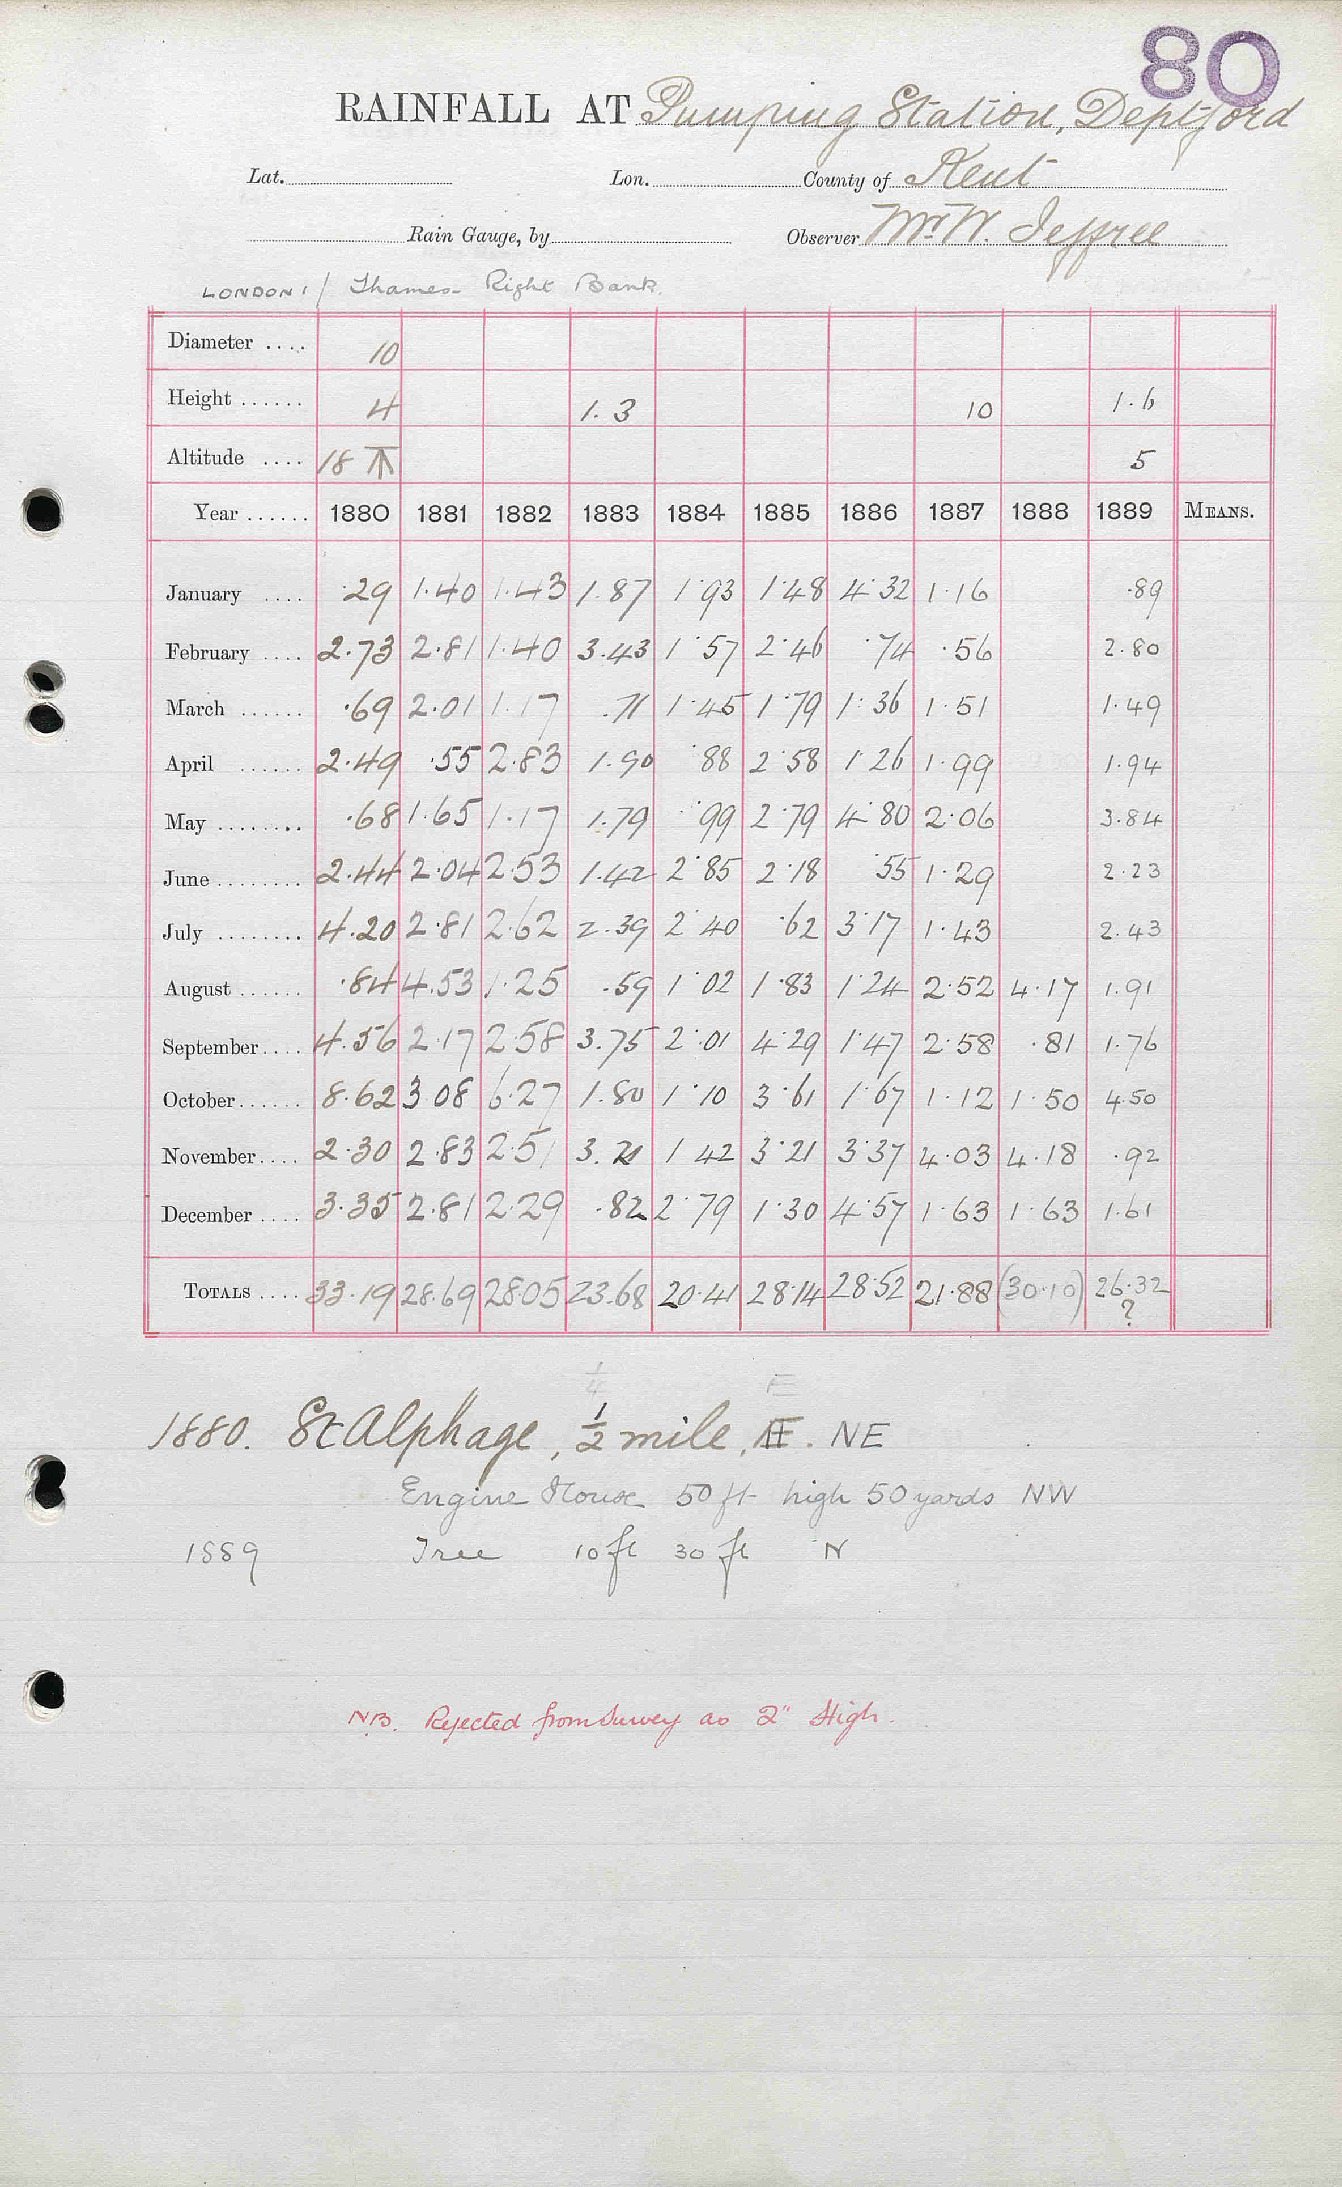 80
RAINFALL AT Pumping Station, Deptford
Lat. Lon. County of Kent
Rain Gauge, by Observer Mr W. Jeffree
LONDON 1/ Thames Right Bank.
Diameter .... 10
Height ...... 4 1.3 10 1.6
Altitude .... 18 5
Year ...... 1880 1881 1882 1883 1884 1885 1886 1887 1888 1889 MEANS.
January .... .29 1.40 1.43 1.87 1.93 1.48 4.32 1.16 .89
February .... 2.73 2.81 1.40 3.43 1.57 2.46 .74 .56 2.80
March ...... .69 2.01 1.17 .71 1.45 1.79 1.36 1.51 1.49
April ...... 2.49 .55 2.83 1.90 .88 2.58 1.26 1.99 1.94
May ........ .68 1.65 1.17 1.79 .99 2.79 4.80 2.06 3.84
June ........ 2.44 2.04 2.53 1.42 2.85 2.18 .55 1.29 2.23
July ........ 4.20 2.81 2.62 2.39 2.40 .62 3.17 1.43 2.43
August ...... .84 4.53 1.25 .59 1.02 1.83 1.24 2.52 4.17 1.91
September .... 4.56 2.17 2.58 3.75 2.01 4.29 1.47 2.58 .81 1.76
October ...... 8.62 3 08 6.27 1.80 1.10 3.61 1.67 1.12 1.50 4.50
November .... 2.30 2.83 2.51 3.21 1 42 3.21 3.37 4.03 4.18 .92
December .... 3.35 2.81 2.29 .82 2.79 1.30 4.57 1.63 1.63 1.61
TOTALS .... 33.19 28.69 28.05 23.68 20.41 28.14 28.52 21.88 (30.10) 26.32
?
1/4 E
1880. St Alphage, 1/2 mile, NE
Engine House 50 ft high 50 yards NW
1889 Tree 10 ft 30 ft N
N.B. Rejected from Survey as 2" High.